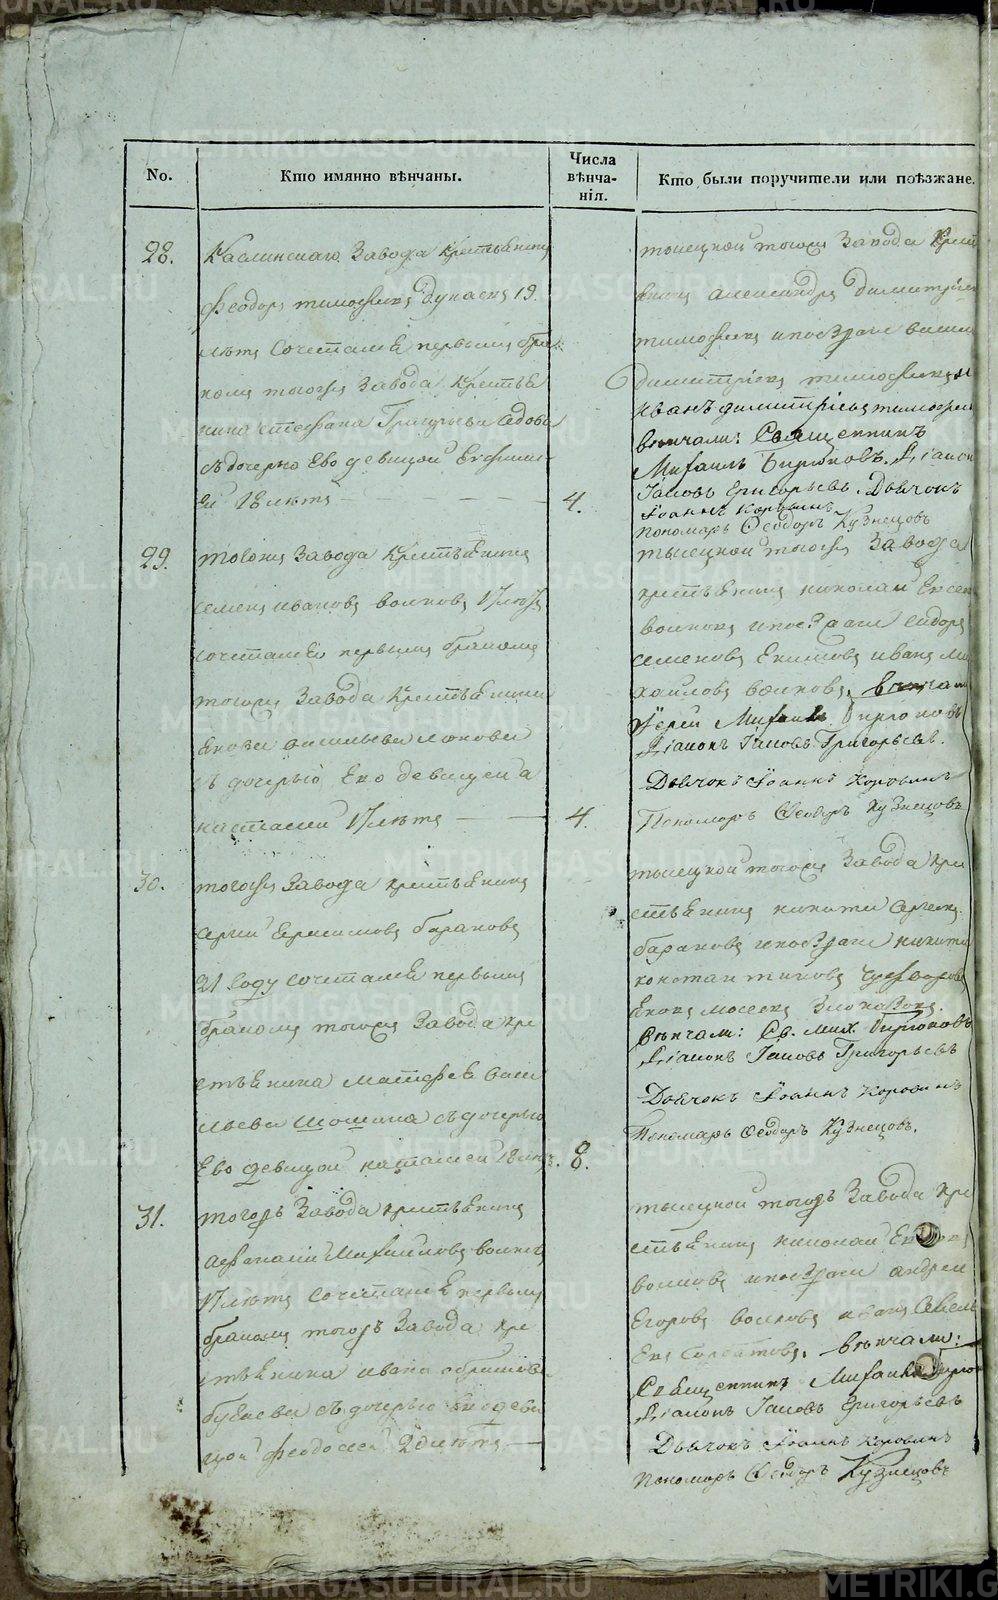 No.
Кто имянно вѣнчаны.
Числа
вѣнча-
нія.
Кто были поручители или поѣзжане.
28.
Каслинскаго Завода Крестьянинъ
Феодоръ тимофеевъ дунаевъ 19.
лѣтъ сочетался первымъ бра
комъ тогожъ Завода Крестья
нина стефана Григорьева Седова
съ дочерью Ево девицою Евфими
ей 18 лѣтъ
4.
тысецкой тогожъ Завода Крест
янинъ александръ димитріевъ
тимофеевъ ипоезжане
димитріевъ тимофеевъ и
иванъ димитріевъ тимофеев
вѣнчали: Священникъ
Михаилъ Бирюковъ. Діаконъ
Іаковъ Григорьевъ. Дьячокъ
Іоаннъ Коровинъ
пономарь Феодоръ Кузнецовъ
29.
тогожъ Завода Крестьянинъ
семенъ ивановъ волковъ 17 летъ
сочетался первымъ бракомъ
тогожъ Завода Крестьянина
Якова васильева
съ дочерью Ево девицей а
настасией 17 лѣтъ
4.
тысецкой тогожъ Завода
крестьянинъ николай
волковъ ипоезжане сидоръ
семеновъ Екимовъ иванъ ми
хаиловъ волковъ. вѣнчали
Іерей Михаилъ Бирюковъ
Діаконъ Іаковъ Григорьевъ.
Дьячокъ Іоаннъ Коровинъ
Пономарь Феодоръ Кузнецовъ
30.
тогожъ Завода крестьянинъ
сергей Герасимовъ барановъ
21 Году сочетался первымъ
бракомъ тогожъ Завода кре
стьянина матфея васи
льева шошина съ дочерью
Ево девицой наталией 18 летъ.
8.
тысецкой тогожъ Завода кре
стьянинъ никита Сергеевъ
барановъ ипоезжане никита
константиновъ
Яковъ мосеевъ Злоказовъ.
Вѣнчали: Св. Мих. Бирюковъ
Діаконъ Іаковъ Григорьевъ
Дьячокъ Іоаннъ Коровинъ
Пономарь Феодоръ Кузнецовъ.
31.
тогожъ Завода крестьянинъ
афанасій Михайловъ волковъ
17 лѣтъ сочетался первымъ
бракомъ тогожъ Завода кре
стьянина ивана
съ дочерью Ево деви
цой феодосией
тысецкой тогожъ Завода кре
стьянинъ николай
волковъ ипоезжане андрей
Егоровъ волковъ иванъ Савель
евъ вѣнчали:
Священникъ Михаилъ Бирю
Діаконъ Іаковъ Григорьевъ
Дьячокъ Іоаннъ Коровинъ
Пономарь Феодоръ Кузнецовъ
METRIKI.GASO-URAL.RU